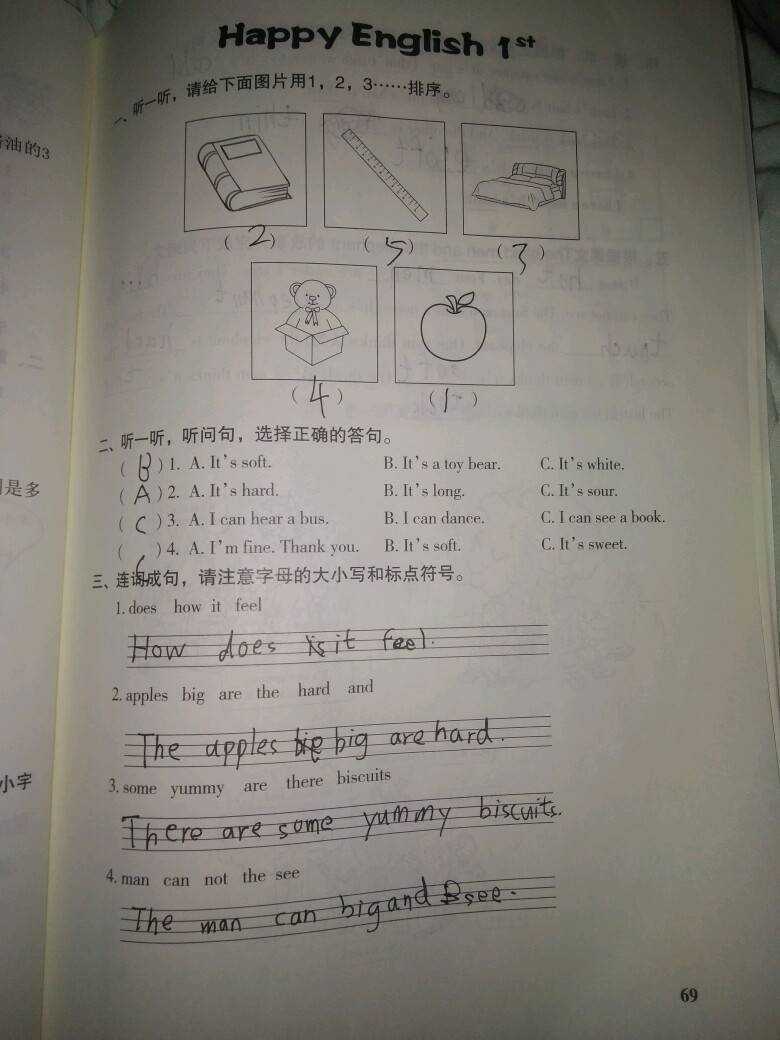 Happy English 1st
一、听一听，请给下面图片用1，2，3……排序。
油的3
(2) (5) (3)
(4) (1)
二、听一听，听问句，选择正确的答句。
(B) 1. A. It's soft. B. It's a toy bear. C. It's white.
是多
(A) 2. A. It's hard. B. It's long. C. It's sour.
(C) 3. A. I can hear a bus. B. I can dance. C. I can see a book.
( ) 4. A. I'm fine. Thank you. B. It's soft. C. It's sweet.
三、连词成句，请注意字母的大小写和标点符号。
1. does how it feel
How does is it feel.
2. apples big are the hard and
The apples big big are hard.
小字
3. some yummy are there biscuits
There are some yummy biscuits.
4. man can not the see
The man can big and see.
69